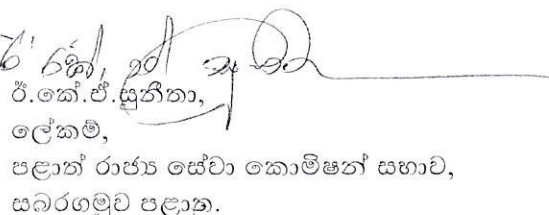 ඊ.කේ.ඒ.සුනීතා,
ලේකම්,
පළාත් රාජ්‍ය සේවා කොමිෂන් සභාව,
සබරගමුව පළාත.